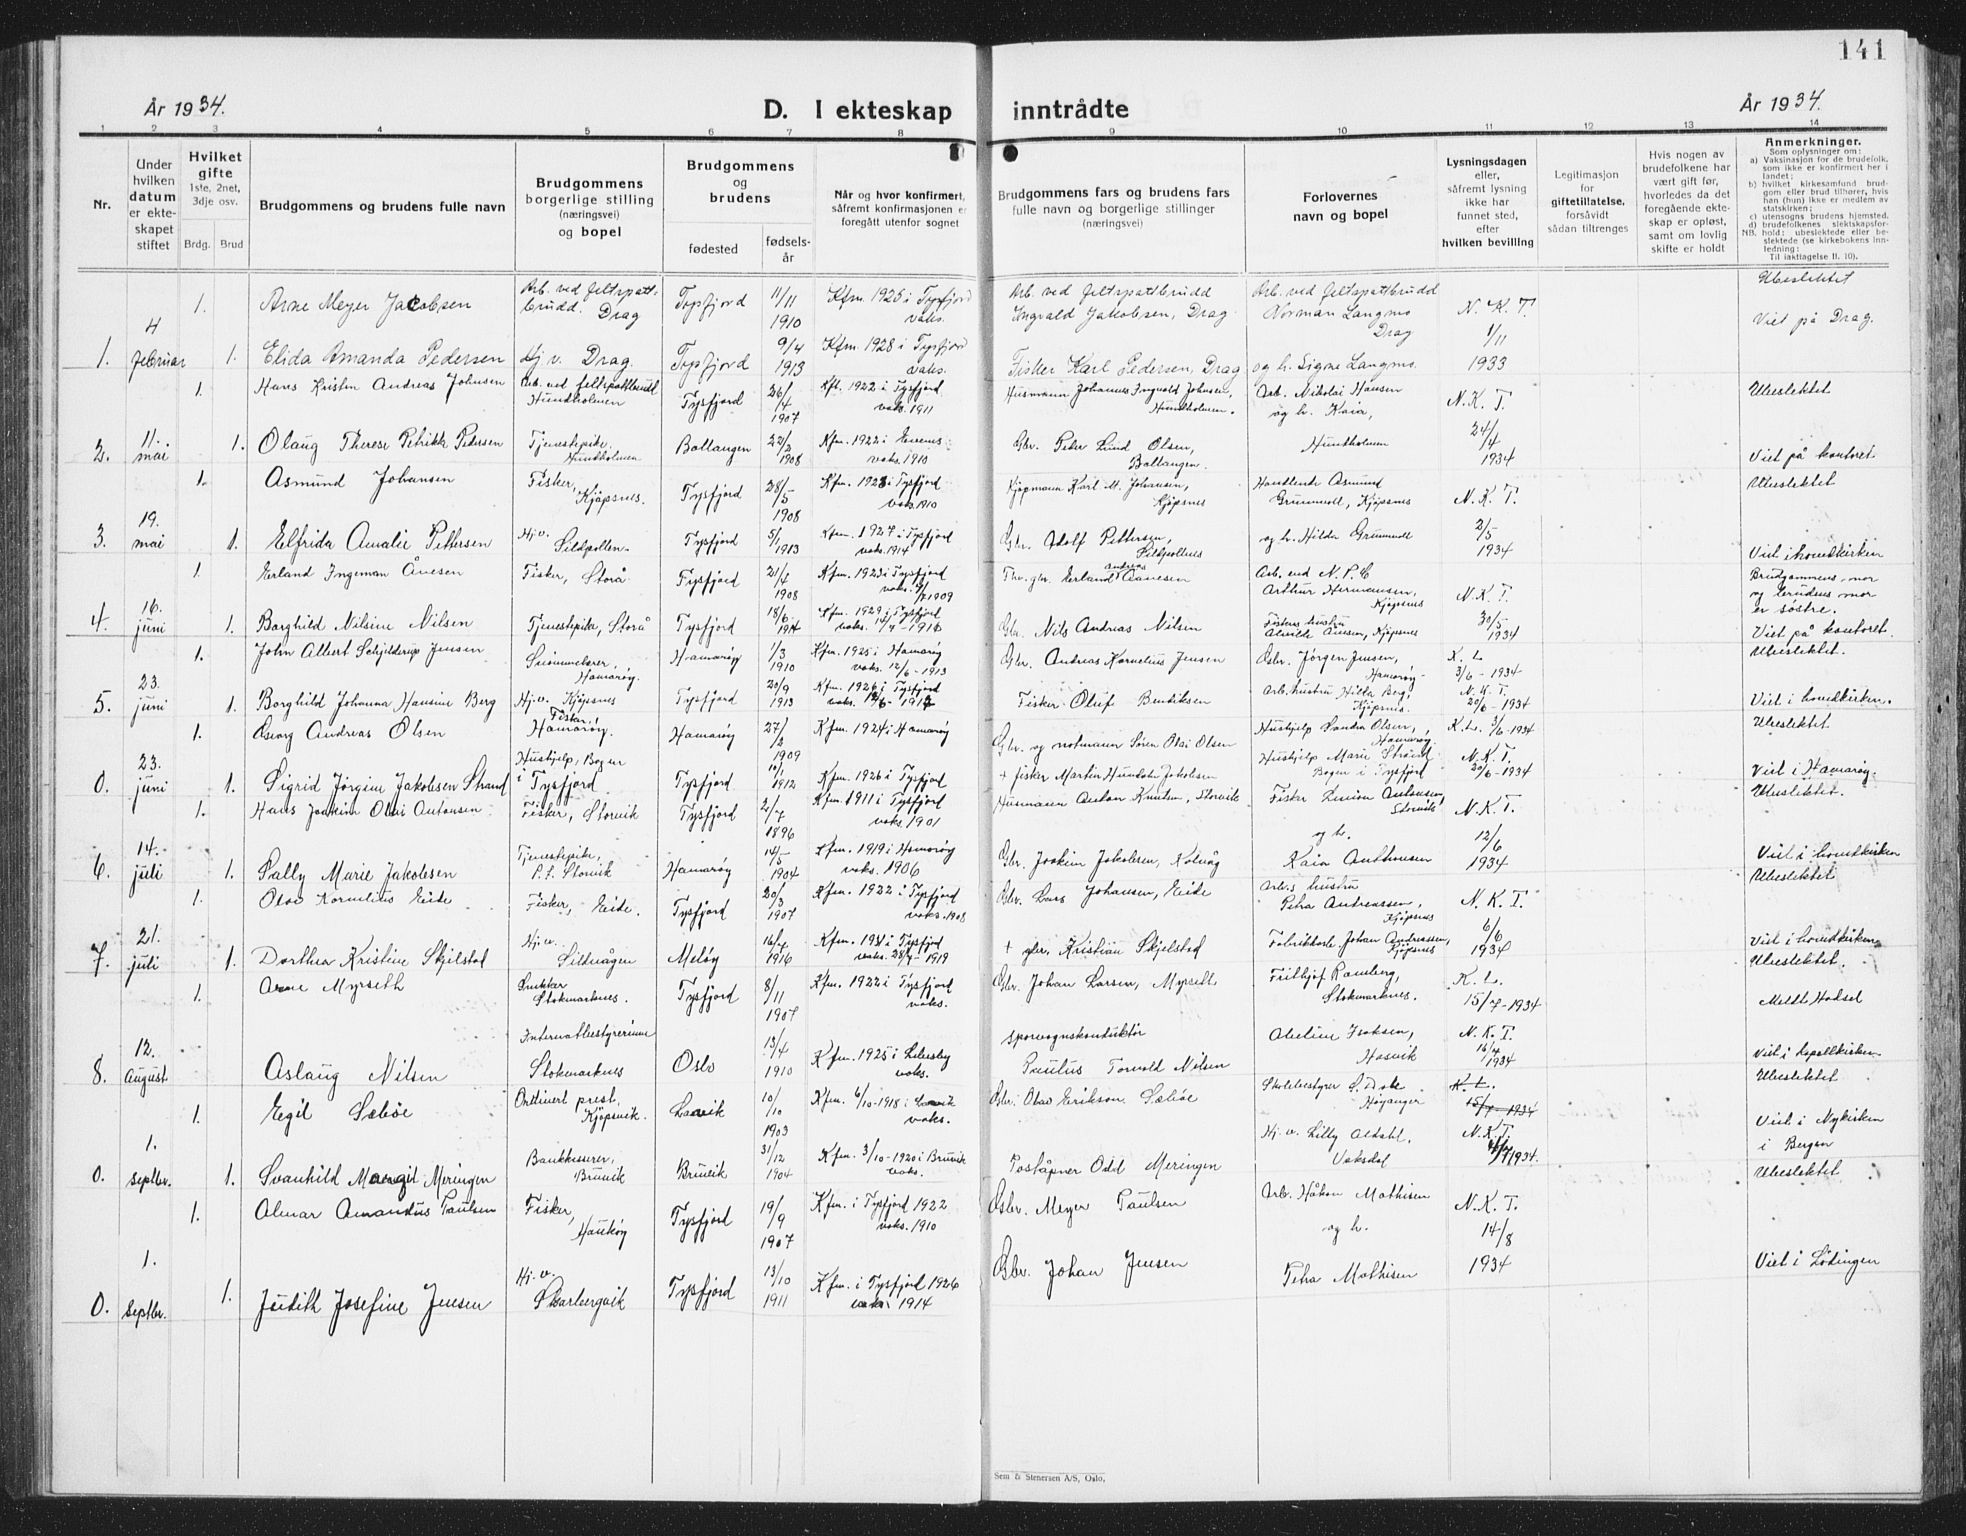 141
År 1934.
D. I ekteskap inntrådte
År 1934.
1 2 3 4 5 6 7 8 9 10 11 12 13 14
Nr.
Under hvilken datum er ekteskapet stiftet
Hvilket gifte 1ste, 2net, 3dje osv.
Brdg. Brud
Brudgommens og brudens fulle navn
Brudgommens borgerlige stilling (næringsvei) og bopel
Brudgommens og brudens
fødested
fødselsår
Når og hvor konfirmert, såfremt konfirmasjonen er foregått utenfor sognet
Brudgommens fars og brudens fars fulle navn og borgerlige stillinger (næringsvei)
Forlovernes navn og bopel
Lysningsdagen eller, såfremt lysning ikke har funnet sted, efter hvilken bevilling
Legitimasjon for giftetillatelse, forsåvidt sådan tiltrenges
Hvis nogen av brudefolkene har vært gift før, hvorledes da det foregående ekteskap er opløst, samt om lovlig skifte er holdt
Anmerkninger.
Som oplysninger om:
a) Vaksinasjon for de brudefolk, som ikke er konfirmert her i landet;
b) hvilket kirkesamfund brudgom eller brud tilhører, hvis han (hun) ikke er medlem av statskirken;
c) utensogns brudens hjemsted.
d) brudefolkenes slektskapsforhold: ubeslektede eller beslektede (se kirkebokens innledning:
NB.
Til iakttagelse II. 10).
1. Arne Meyer Jacobsen Arb. ved feltspattbrudd. Drag Tysfjord 11/11 1910 Kfm. 1925 i Tysfjord vaks. Arb. ved feltspattbrudd Ingvald Jakobsen, Drag Arb. ved feltspattbrudd Norman Langmo Drag N. K. T. 1/11 Ubeslektet Viet på Drag.
1. 4 februar 1. Elida Amanda Pedersen Hj. v. Drag. Tysfjord 9/4 1913 Kfm. 1928 i Tysfjord vaks. Fisker Karl Pedersen, Drag og h. Signe Langmo. 1933
1. Hans Kristen Andreas Johnsen Arb. ved feltspattbrudd Hundholmen Tysfjord 26/4 1907 Kfm. 1922 i Tysfjord vaks. 1911 Husmann Johannes Ingvald Johnsen, Hundholmen. Arb. Nikolai Hansen og h. Kaia, N. K. T. Ubeslektet
2. 11. mai 1. Olaug Therese Petrikke Pedersen Tjenestepike, Hundholmen Ballangen 22/2 1908 Kfm. 1922 i Evenes vaks. 1910 Gbr. Peder Lund Olsen, Ballangen. Hundholmen 24/4 1934 Viet på kontoret
1. Asmund Johansen Fisker, Kjøpsnes. Tysfjord 28/5 1908 Kfm. 1923 i Tysfjord vaks 1910 Kjøpmann Karl M. Johansen, Kjøpsnes Handlende Asmund Grunnvoll, Kjøpsnes N. K. T. Ubeslektet
3. 19. mai 1. Elfrida Amalie Pettersen Hj. v. Sildpollen. Tysfjord 5/1 1913 Kfm. 1927 i Tysfjord vaks. 1914 Gbr. Adolf Pettersen, Sildpollenes og h. Hilda Grunnvoll 2/5 1934 Viet i hovedkirken
1. Erland Ingeman Ånesen Fisker, Storå Tysfjord 21/4 1908 Kfm. 1923 i Tysfjord vaks. 1909 Fhv. gbr. Erland Andreas Aanesen Arb. ved N. P. C Arthur Hermansen, Kjøpsnes N. K. T. Brudgommens mor og brudens mor er søstre.
4. 16. juni 1. Borghild Nilsine Nilsen Tjenestepike, Storå Tysfjord 18/6 1914 Kfm. 1929 i Tysfjord vaks. 1916 Gbr. Nils Andreas Nilsen Fiskers hustru Alvilde Ånesen, Kjøpsnes 30/5 1934 Viet på kontoret.
1. John Albert Schjelderup Jensen Hamarøy. Hamarøy 1/3 1910 Kfm. 1925 i Hamarøy vaks 12/6 - 1913 Gbr. Andreas Kornelius Jensen Gbr. Jørgen Jensen, Hamarøy. K. L. 3/6 - 1934 Ubeslektet.
5. 23. juni 1. Borghild Johanna Hansine Berg Hj. v. Kjøpsnes Tysfjord 20/9 1913 Kfm. 1926 i Tysfjord Fisker Oluf Bendiksen Arb. hustru Hilda Berg, Kjøpsnes. N. K. T. 20/6 - 1934 Viet i hovedkirken.
1. Georg Andreas Olsen Fisker, Hamarøy. Hamarøy 27/2 1909 Kfm. 1924 i Hamarøy Gbr. og notmann Søren Olai Olsen Hushjelp Sandra Olsen, Hamarøy K. L. 3/6 - 1934 Ubeslektet
0. 23. juni 1. Sigrid Jørgine Jakobsen Strand Hushjelp, Bogen i Tysfjord Tysfjord 10/1 1912 Kfm. 1926 i Tysfjord + fisker Martin Jakobsen Hushjelp Marie Strand Bogen i Tysfjord N. K. T. 20/6 - 1934 Viet i Hamarøy.
1. Hans Joakim Olai Antonsen Fisker, Storvik Tysfjord 2/7 1896 Kfm. 1911 i Tysfjord vaks. 1901 Husmann Anton Knutsen, Storvik Fisker Antonsen, Storvik N. K. T. Ubeslektet.
6. 14. juli 1. Pally Marie Jakobsen Tjenestepike, P. t. Storvik Hamarøy 14/5 1904 Kfm. 1919 i Hamarøy vaks. 1906 Gbr. Joakim Jakobsen, og h. Kaia Anthonsen 12/6 1934 Viet i hovedkirken
1. Olav Kornelius Eide Fisker, Eide. Tysfjord 20/3 1907 Kfm. 1922 i Tysfjord vaks. 1908 Gbr. Lars Johansen, Eide Arb.s hustru Petra Andreassen, Kjøpsnes N. K. T. Ubeslektet
7. 21. juli 1. Dorthea Kristine Skjelstad Hj. v. Sildvågen Meløy 16/7 1916 Kfm. 1931 i Tysfjord vaks. - 1919 + gbr. Kristian Skjelstad Johan Andreassen, Kjøpsnes 6/6 1934 Viet i hovedkirken
1. Arne Myrseth Snekker Stokmarknes. Tysfjord 8/11 1907 Kfm. 1922 i Tysfjord vaks. Gbr. Johan Larsen, Myrseth Frithjof Ramberg, Stokmarknes. K. L. 15/7 - 1934 Ubeslektet. Meldt Hadsel
8. 12. August 1. Aslaug Nilsen Internatbestyrerinne Stokmarknes Oslo 13/4 1910 Kfm. 1925 i Lebesby vaks. Sporvognskonduktør Paulus Torvald Nilsen Isaksen, Hasvik N. K. T. 1934 Viet i kapellkirken
1. Egil Sæbøe Ordinert prest, Kjøpsvik. Lavik 10/10 1903 Kfm. 6/10 - 1918 i Lavik vaks. Gbr. Olav Erikson Sæbøe Skolebestyrer Høyanger K. L. 15/7 - 1934 Ubeslektet Viet i Nykirken i Bergen
0. 1. septbr. 1. Svanhild Margit Meringen Bankkasserer, Bruvik Bruvik 31/12 1904 Kfm. 3/10 - 1920 i Bruvik vaks. Poståpner Odd Meringen Hj. v. Lilly Aldahl, Vaksdal N. K. T. 1934
1. Almar Amandus Paulsen Fisker, Haukøy Tysfjord 19/9 1907 Kfm. i Tysfjord 1922 vaks. 1910 Gbr. Meyer Paulsen Arb. Håkon Mathisen og h. N. K. T. 14/8 Ubeslektet
0. 1. septbr. 1. Judith Josefine Jensen Hj. v. Skarbergvik Tysfjord 13/10 1911 Kfm. i Tysfjord 1926 vaks. 1914 Gbr. Johan Jensen Petra Mathisen 1934 Viet i Lødingen
Sem & Stenersen A/S, Oslo.